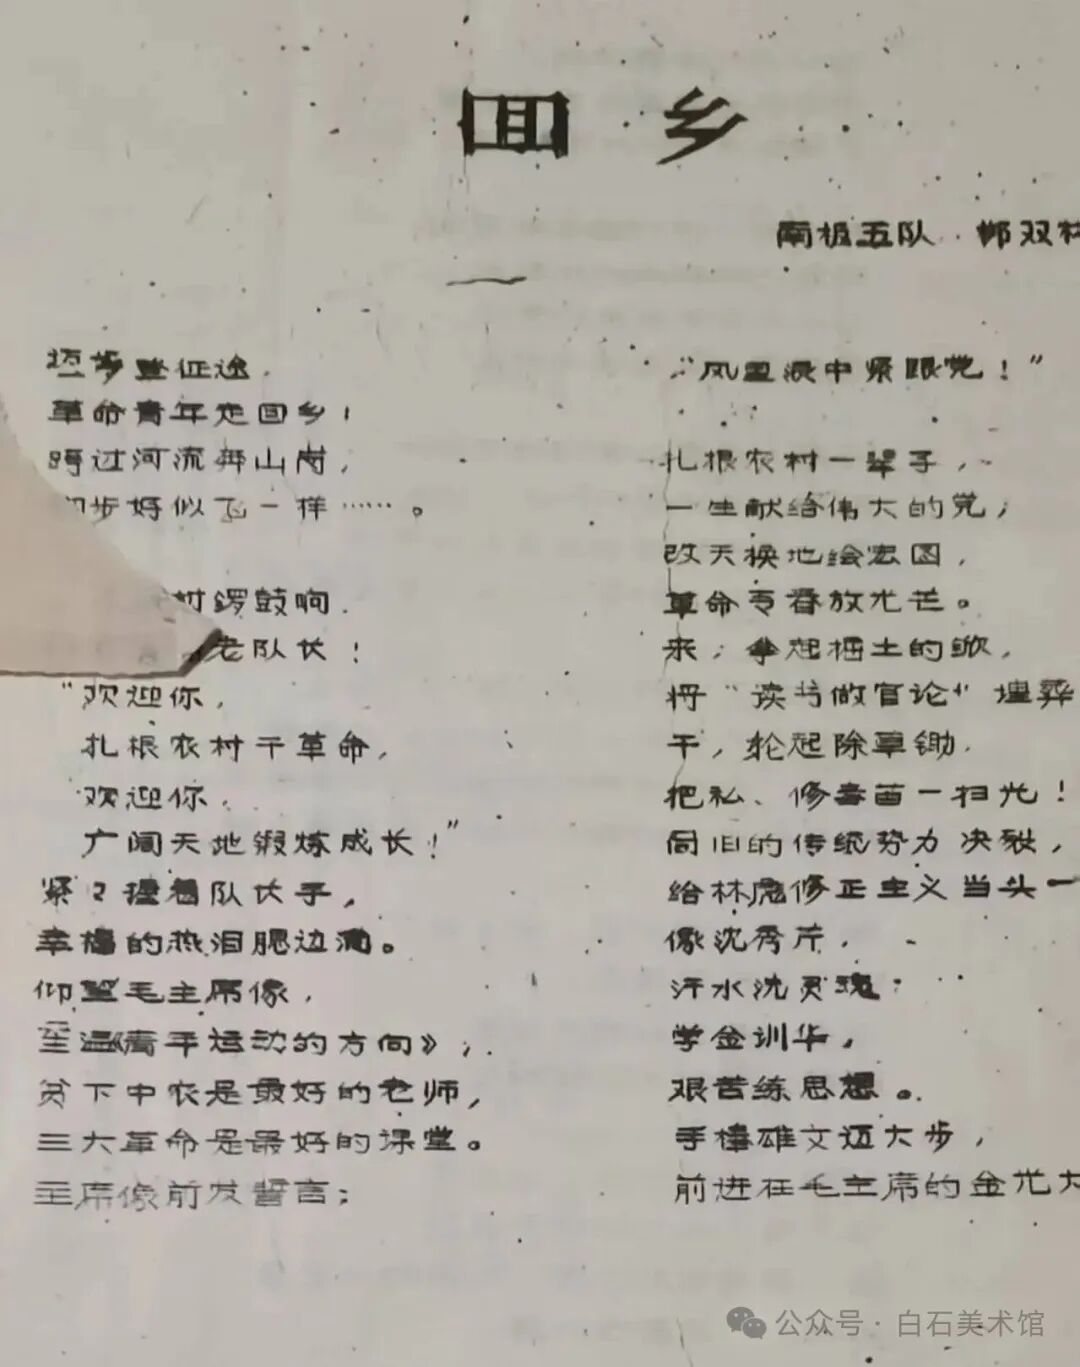 回乡
南极五队 郸双林
迈步登征途，
革命青年走回乡！
跨过河流奔山岗，
步好似飞一样……。
村锣鼓响，
老队长！
“欢迎你，
扎根农村干革命，
欢迎你，
广阔天地锻炼成长！”
紧々握着队长手，
幸福的热泪腮边淌。
仰望毛主席像，
重温《青年运动的方向》，
贫下中农是最好的老师，
三大革命是最好的课堂。
主席像前发誓言：
“风里浪中紧跟党！”
扎根农村一辈子，
一生献给伟大的党；
改天换地绘宏图，
革命青春放光芒。
来，拿起掘土的锨，
将“读书做官论”埋葬
干，抡起除草锄，
把私、修毒苗一扫光！
同旧的传统势力决裂，
给林彪修正主义当头一
像沈秀芹，
汗水洗灵魂；
学金训华，
艰苦练思想。
手捧雄文迈大步，
前进在毛主席的金光大
公众号·白石美术馆